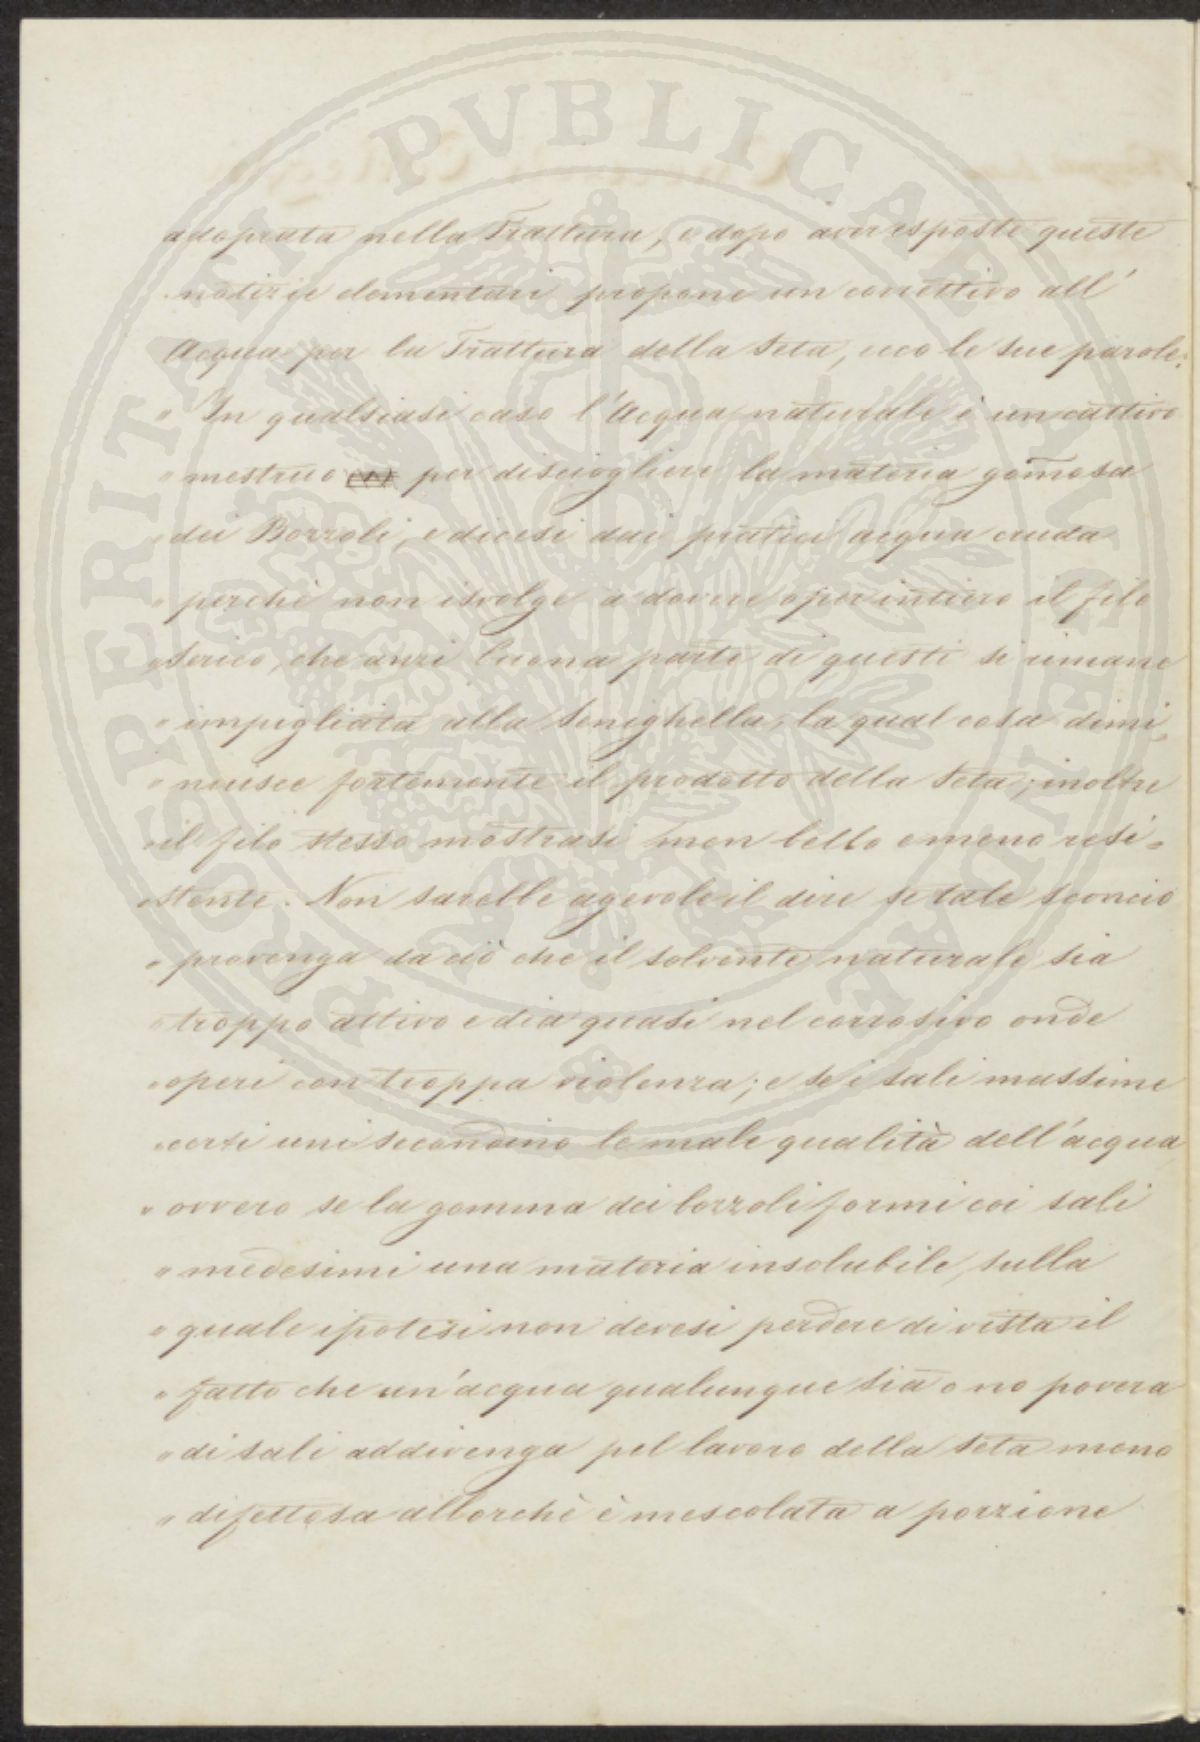 adoprata nella Trattura, e dopo aver esposte queste
notizie elementari propone un correttivo all'
Acqua per la Trattura della Seta, ecco le sue parole:
" In qualsiasi caso l'Acqua naturale è un cattivo
" mestruo per disciogliere la materia gom̄osa
" dei Bozzoli, e dicesi dai pratici acqua cruda
" perchè non isvolge a dovere o per intiero il filo
" Serico, che anzi buona parte di questi si rimane
" impigliata alla Seneghella, la qual cosa dimi„
" nuisce fortemente il prodotto della Seta; inoltre
" il filo stesso mostrasi men bello e meno resi=
" stente. Non sarebbe agevole il dire se tale sconcio
" provenga da ciò che il solvente naturale sia
" troppo attivo e dia quasi nel corrosivo onde
" operi con troppa violenza; e se i sali massime
" certi uni secondino le male qualità dell'acqua
" ovvero se la gomma dei bozzoli formi coi sali
" medesimi una materia insolubile, sulla
" quale ipotesi non devesi perdere di vista il
" fatto che un'acqua qualunque sia o no povera
" di sali addivenga pel lavoro della Seta meno
" difettosa allorchè è mescolata a porzione
PROSPERITATI PUBLICAE AUGENDAE